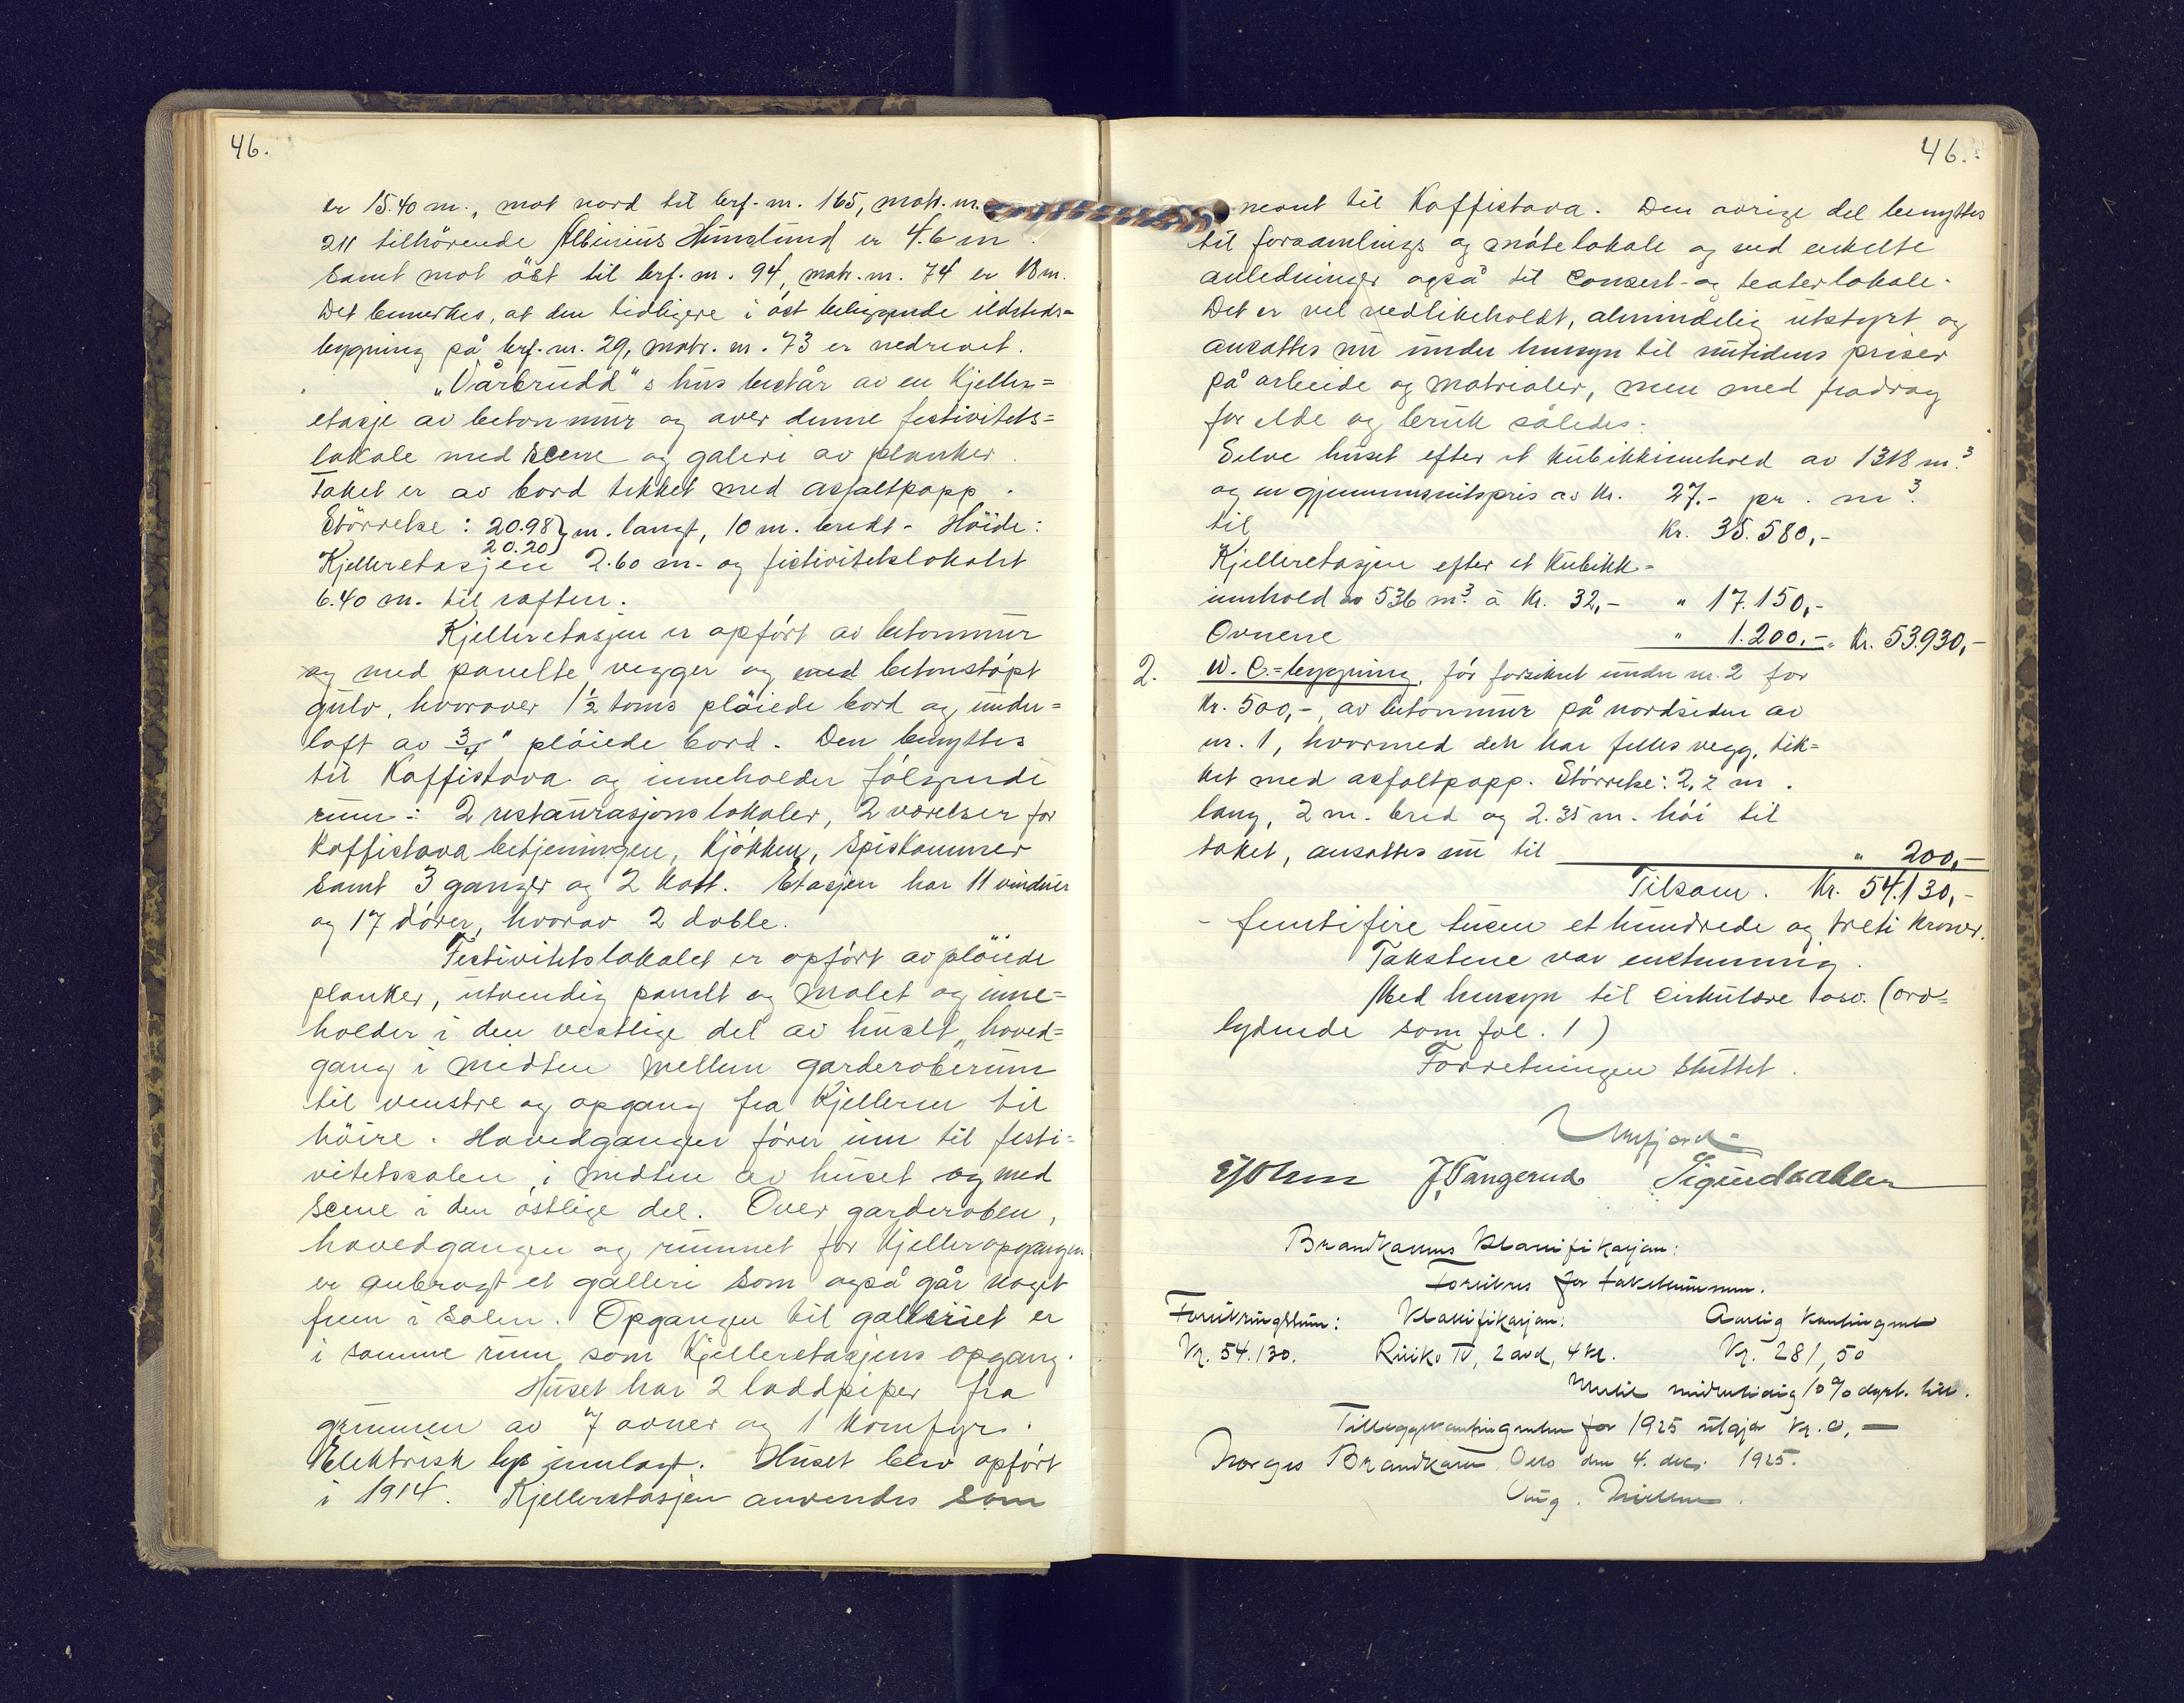 46.
er 15.40 m., mot nord til brf. nr. 165, matr. nr.
211 tilhörende Albinius Hunslund er 4.6 m.
Samt mot öst til brf. nr. 94, matr. nr. 74 er 18 m.
Det bemerkes, at den tidligere i öst beliggende ildsteds=
bygning på brf. nr. 29, matr. nr. 73 er nedrevet.
„Vårbrudd"s hus består av en Kjeller=
etasje av beton mur og over denne festivitets=
lokale med scene og galeri av planker.
Taket er av bord tekket med asfaltpapp.
Störrelse: 20.98 m. langt, 10 m. bredt. Höide:
20.20
Kjelleretasjen 2.60 m. og festivitetslokalet
6.40 m. til raften.
Kjelleretasjen er opfört av betonmur
og med panelte vegger og med betonstöpt
gulv, hvorover 1½ toms plöiede bord og under=
loft av 3/4" plöiede bord. Den benyttes
til Kaffistova og inneholder fölgende
rum: 2 restaurasjonslokaler, 2 værelser for
Kaffistova betjeningen, Kjökken, Spiskammer
Samt 3 ganger og 2 Kott. Etasjen har 11 vinduer
og 17 dörer, hvorav 2 doble.
Festivitetslokalet er opfört av plöiede
planker, utvendig panelt og malet og inne=
holder i den vestlige del av huset, hoved=
gang i midten mellem garderoberum
til venstre og opgang fra Kjelleren til
höire. Hovedgangen förer inn til festi=
vitetssalen i midten av huset og med
Scene i den östlige del. Over garderoben,
hovedgangen og rummet for Kjelleropgangen
er anbragt et galleri som også går noget
frem i salen. Opgangen til galleriet er
i samme rum som Kjelleretasjens opgang.
Huset har 2 loddpiper fra
grunnen av 7 ovner og 1 Komfyr.
Elektrisk lys innlagt. Huset blev opfört
i 1914. Kjelleretasjen anvendes som
46.
nevnt til Kaffistova. Den övrige del benyttes
til forsamlings og mötelokale og ved enkelte
anledninger også til Consert- og teaterlokale.
Det er vel vedlikeholdt, almindelig utstyrt og
ansattes nu under hensyn til nutidens priser
på arbeide og matrialer, men med fradrag
for elde og bruk således:
Selve huset efter et Kubikkinnhold av 1318 m.³
og en gjennomsnitspris av Kr. 27.- pr. m³.
til Kr. 35.580,-
Kjelleretasjen efter et Kubikk=
innhold av 536 m³. à Kr. 32,- " 17.150,-
Ovnene " 1.200,- Kr. 53.930,-
2. W. C.=bygning, för forsikret under nr. 2 for
Kr. 500,-, av betonmur på nordsiden av
nr. 1, hvormed den har felles vegg, tek=
ket med asfaltpapp. Störrelse: 2,2 m.
lang, 2 m. bred og 2.35 m. höi til
taket, ansattes nu til " 200,-
Tilsam. Kr. 54.130,-
- femtifire tusen et hundrede og treti kroner.
Takstene var enstemmig.
Med hensyn til Cirkulære osv. (ord=
lydende som fol. 1)
Forretningen sluttet.
J. Tangerud
Brandkassens Klassifikasjon:
Forsikres for takstsummen.
Forsikringssum: Klassifikasjon: Aarlig Kontingent
Kr. 54.130. Risiko IV, 2 avd, 4 kl. Kr. 281,50
Inntil midlertidig 10% dyrt. till.
Tilleggskontingenten for 1925 utgjør Kr. 0,-
Norges Brandkasse Oslo den 4. des. 1925.
Aug. Nielsen.